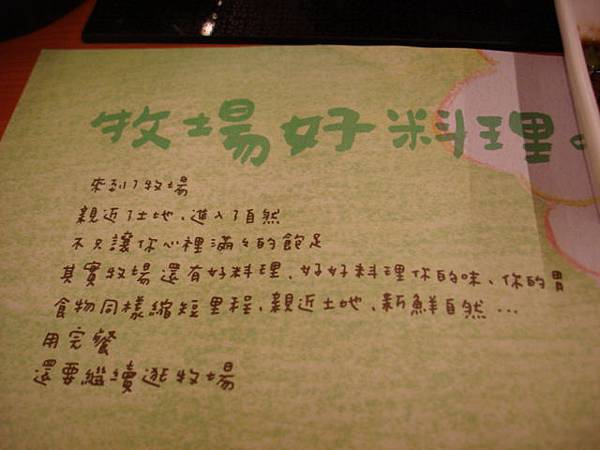 牧場好料理。
來到了牧場
親近了土地、進入了自然
不只讓你心裡滿々的飽足
其實牧場還有好料理、好好料理你的味、你的胃
食物同樣縮短里程、親近土地、新鮮自然...
用完餐
還要繼續逛牧場